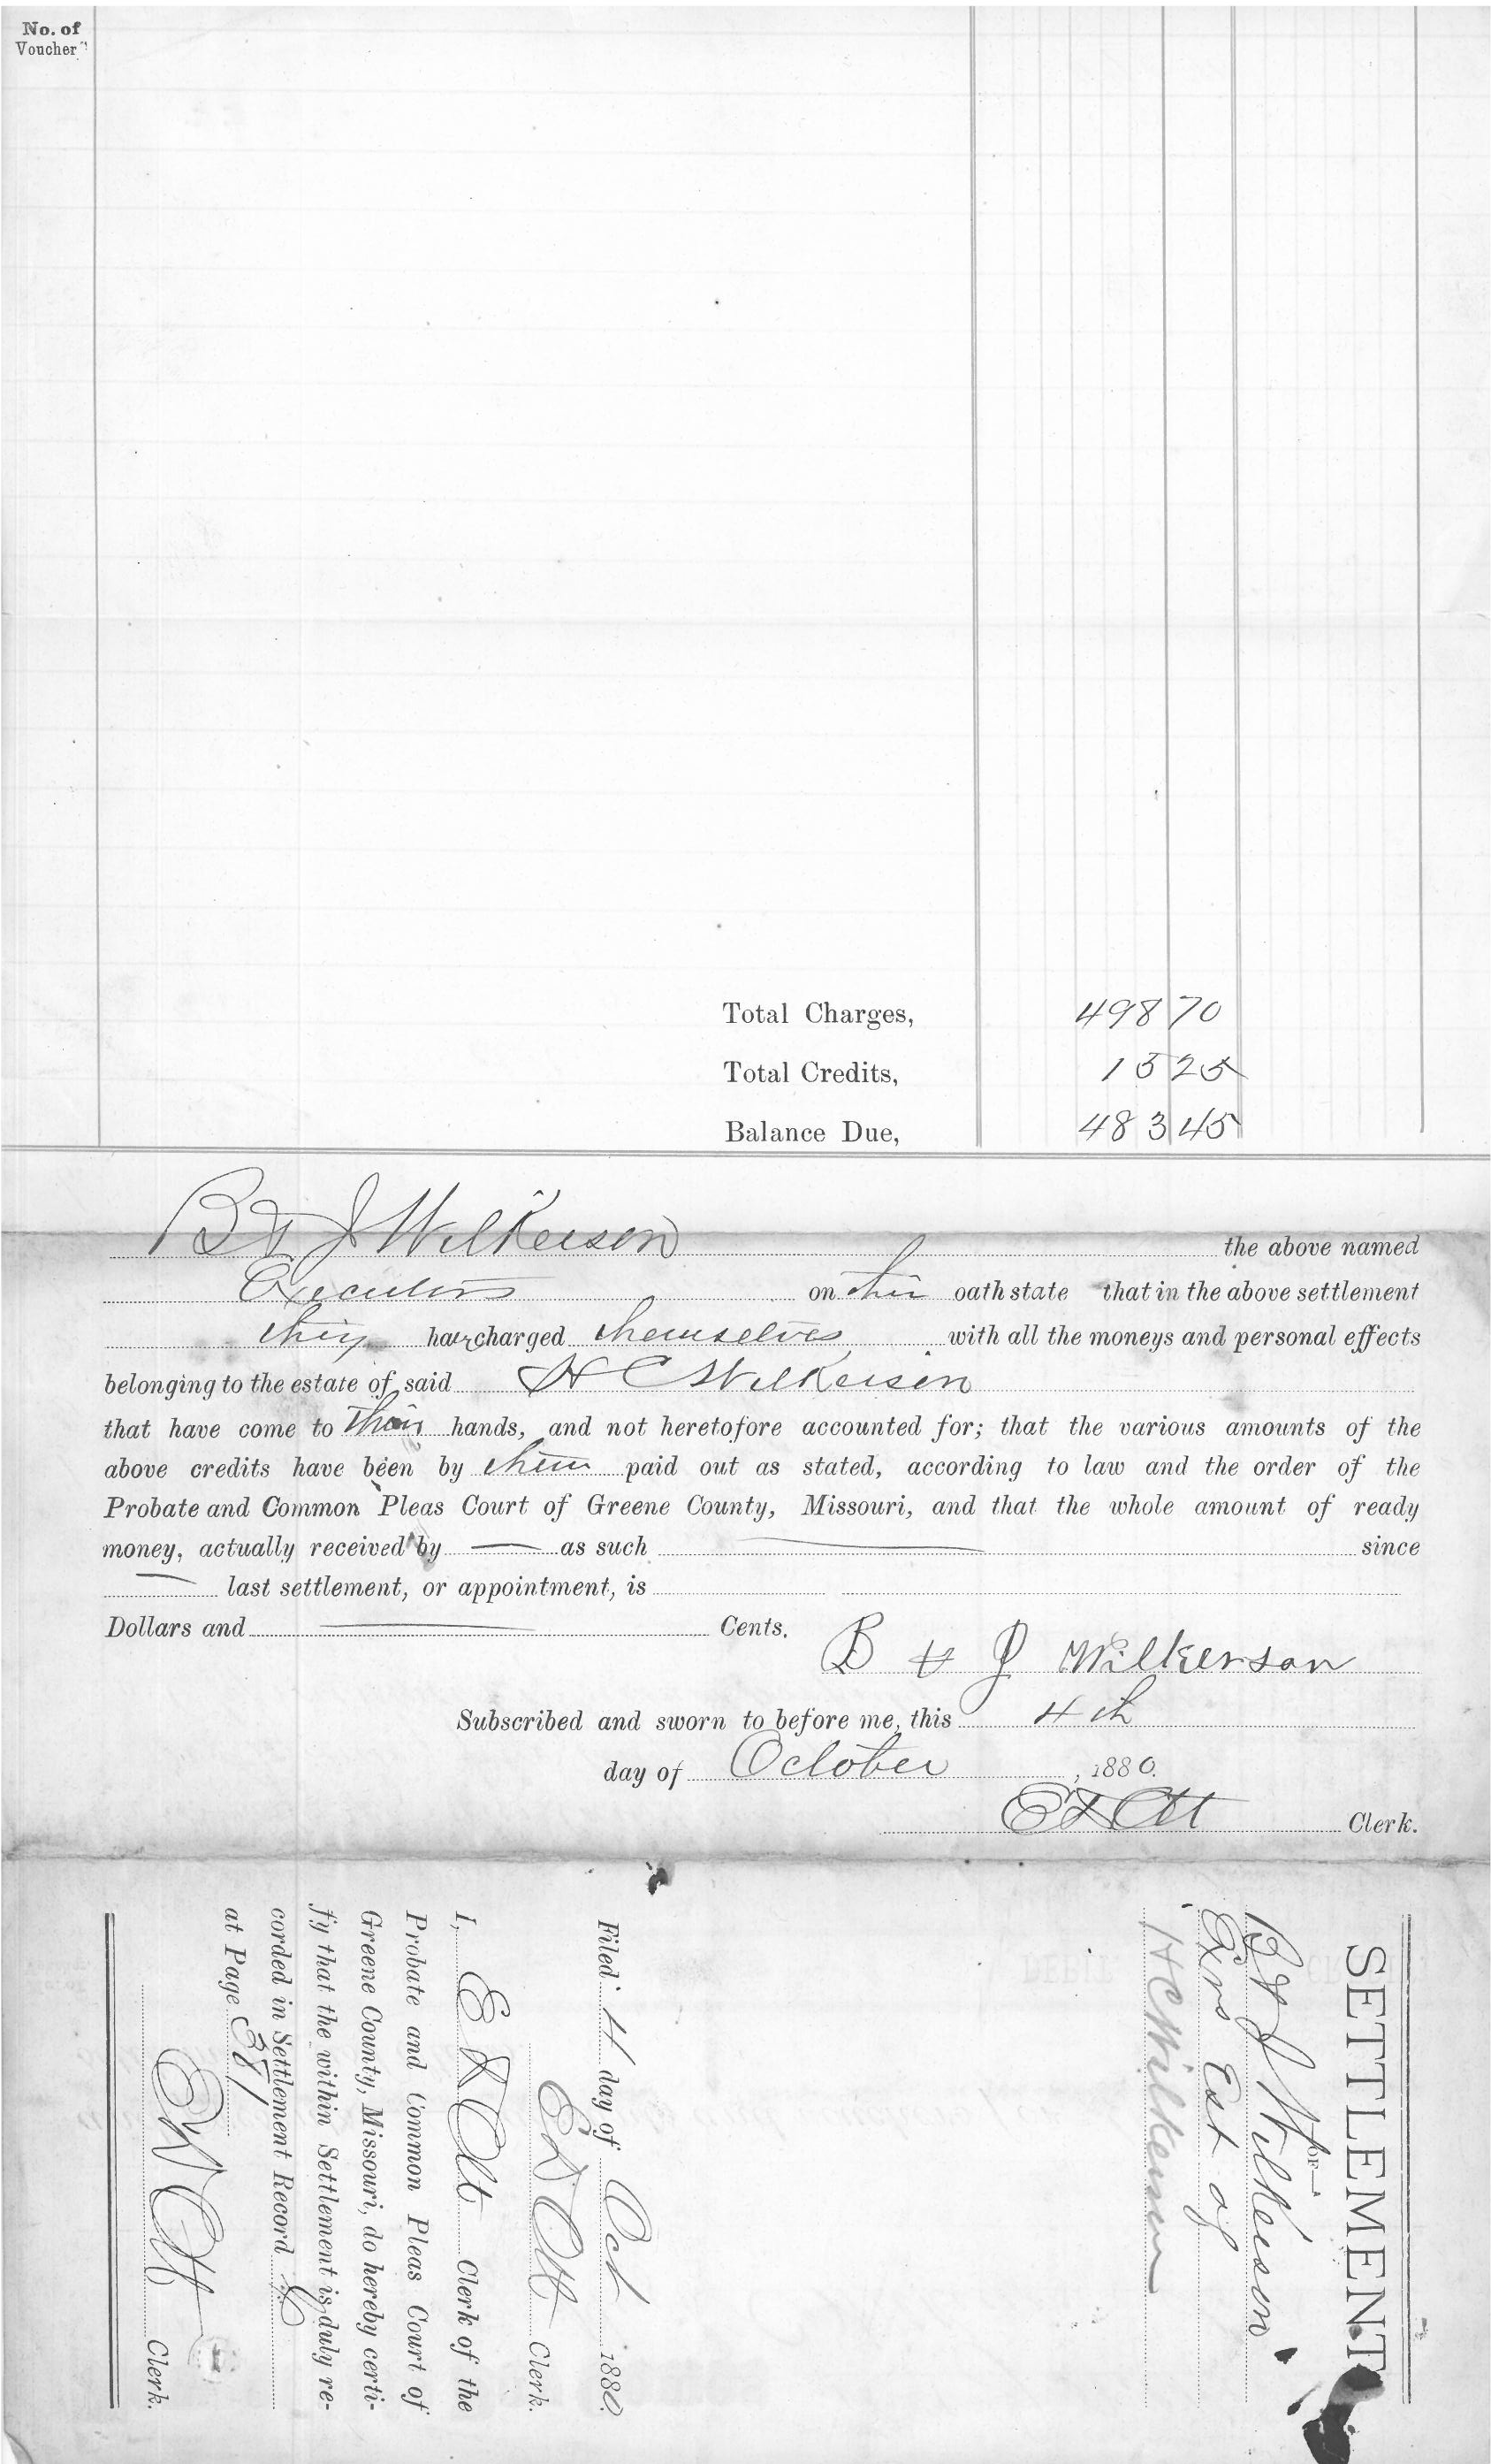 No. of
Voucher
Total Charges, 498 70
Total Credits, 15 25
Balance Due, 483 45
B & J Wilkerson the above named
Executors on their oath state that in the above settlement
they have charged themselves with all the moneys and personal effects
belonging to the estate of said H C Wilkerson
that have come to their hands, and not heretofore accounted for; that the various amounts of the
above credits have been by them paid out as stated, according to law and the order of the
Probate and Common Pleas Court of Greene County, Missouri, and that the whole amount of ready
money, actually received by — as such — since
— last settlement, or appointment, is
Dollars and — Cents.
B & J Wilkerson
Subscribed and sworn to before me, this 4th
day of October, 1880.
E D Ott Clerk.
SETTLEMENT
—OF—
B & J Wilkerson
Exrs Est of
H C Wilkerson
Filed 4 day of Oct 1880.
E D Ott Clerk.
I, E D Ott Clerk of the
Probate and Common Pleas Court of
Greene County, Missouri, do hereby certi-
fy that the within Settlement is duly re-
corded in Settlement Record
at Page 381
E D Ott Clerk.